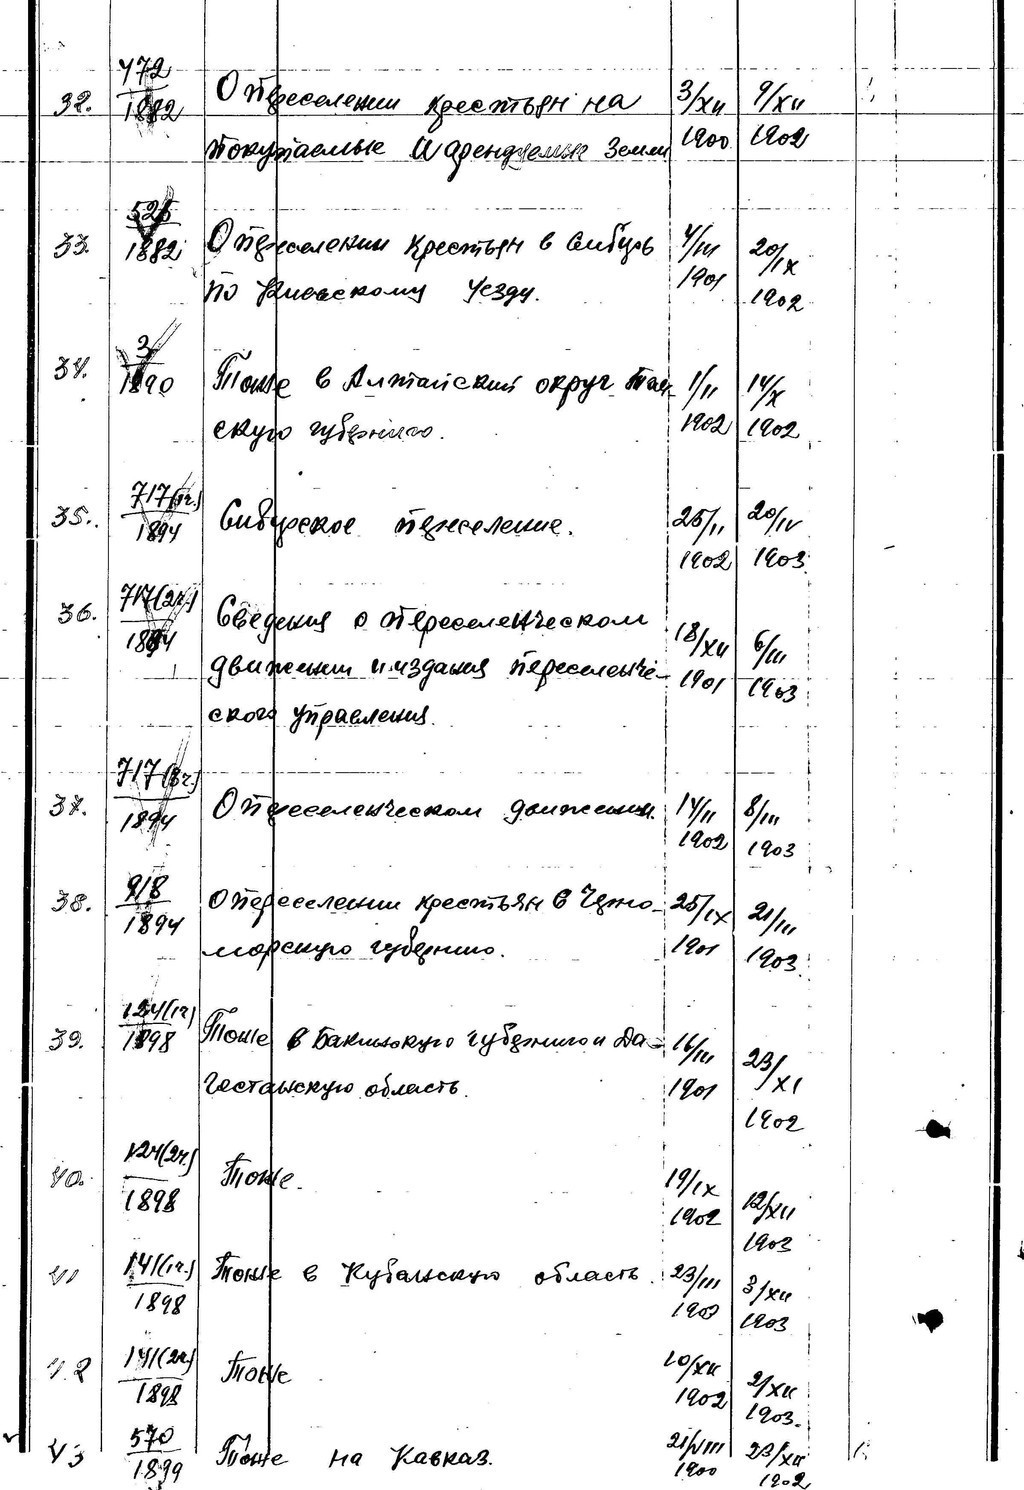 32. 472/1882 О переселении крестьян на 3/XII 9/XII
покупаемые и арендуемые земли 1900 1902
33. 526/1882 О переселении крестьян в Сибирь 4/III 20/IX
по Киевскому уезду. 1901 1902
34. 3/1890 Тоже в Алтайский округ Том- 1/II 14/X
скую губернию. 1902 1902
35. 717(1ч.)/1894 Сибирское переселение. 25/II 20/IV
1902 1903
36. 717(2ч.)/1894 Сведения о переселенческом
движении и издания переселенче- 18/XII 6/III
ского управления. 1901 1903
37. 717(3ч.)/1894 О переселенческом движении. 14/II 8/III
1902 1903
38. 918/1894 О переселении крестьян в Черно- 25/IX 21/III
морскую губернию. 1901 1903
39. 124(1ч)/1898 Тоже в Бакинскую губернию и Да- 16/III 23/XI
гестанскую область. 1901 1902
40. 124(2ч.)/1898 Тоже. 19/IX 12/XII
1902 1903
41 141(1ч.)/1898 Тоже в Кубанскую область. 23/III 3/XII
1903
42 141(2ч)/1898 Тоже 10/XII 2/XII
1902 1903.
43 570/1899 Тоже на Кавказ. 21/VIII 23/XII
1900 1902